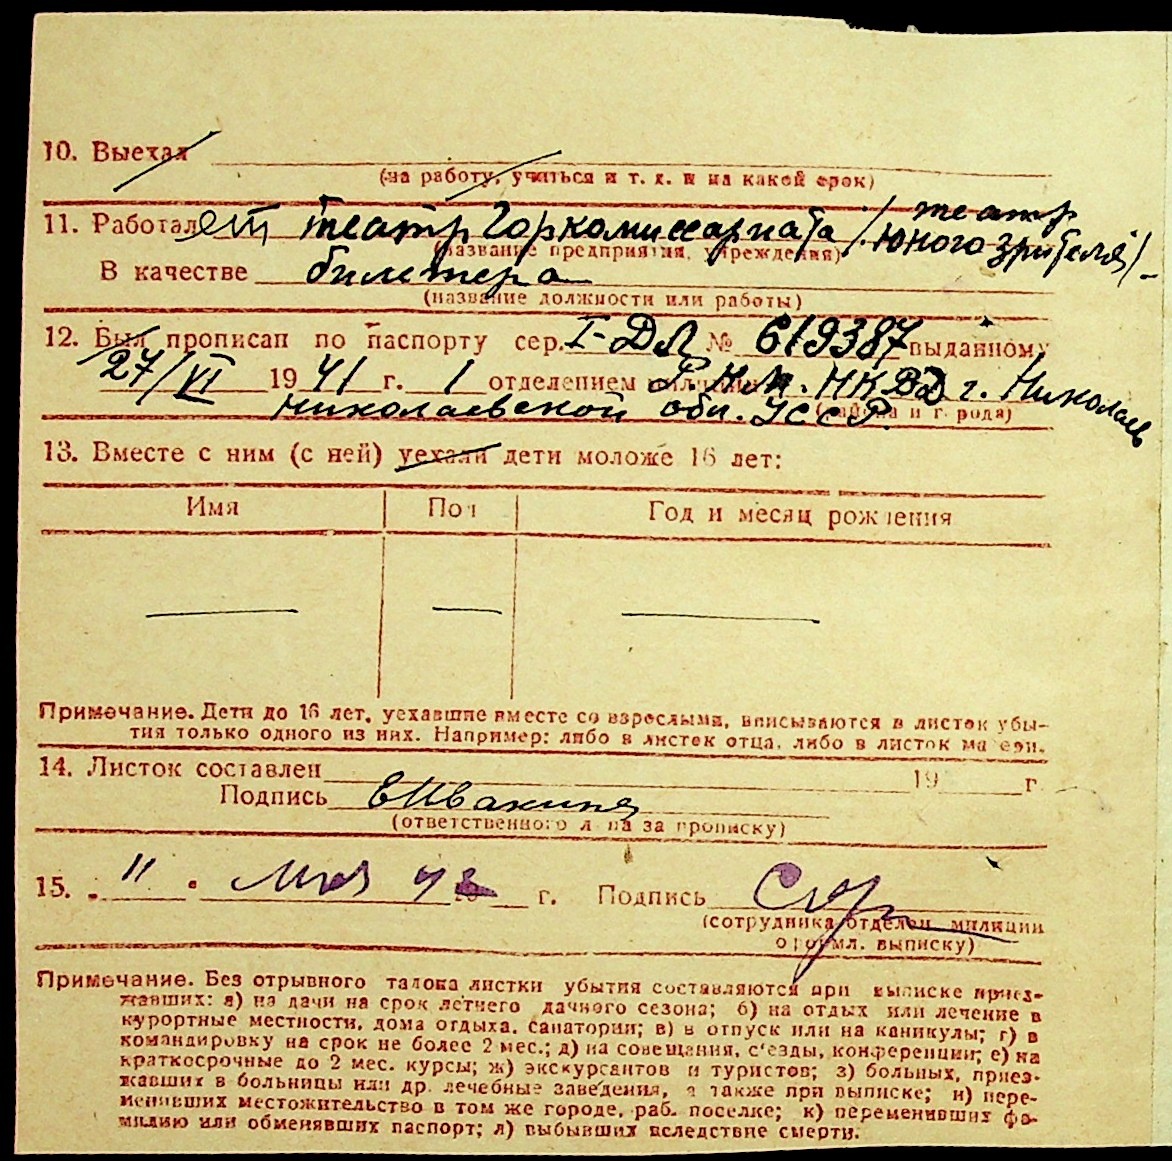 10. Выехал
(на работу, учиться и т. д. и на какой срок)
11. Работает театр Горкомиссариата /театр
юного зрителя/
(название предприятия, учреждения)
В качестве билетера
(название должности или работы)
12. Был прописан по паспорту сер. I-ДЛ № 619387 выданному
27/VI 1941 г. 1 отделением НКВД г. Николаев
Николаевской обл. УССР.
(района и города)
13. Вместе с ним (с ней) уехали дети моложе 16 лет:
Имя Пол Год и месяц рождения
Примечание. Дети до 16 лет, уехавшие вместе со взрослыми, вписываются в листок убы-
тия только одного из них. Например: либо в листок отца, либо в листок матери.
14. Листок составлен 19 г.
Подпись
(ответственного лица за прописку)
15. „11" мая 42 г. Подпись
(сотрудника отделен. милиции
оформл. выписку)
Примечание. Без отрывного талона листки убытия составляются при выписке приез-
жавших: а) на дачи на срок летнего дачного сезона; б) на отдых или лечение в
курортные местности, дома отдыха, санатории; в) в отпуск или на каникулы; г) в
командировку на срок не более 2 мес.; д) на совещания, с'езды, конференции; е) на
краткосрочные до 2 мес. курсы; ж) экскурсантов и туристов; з) больных, приез-
жавших в больницы или др. лечебные заведения, а также при выписке; и) пере-
менивших местожительство в том же городе, раб. поселке; к) переменивших фа-
милию или обменявших паспорт; л) выбывших вследствие смерти.